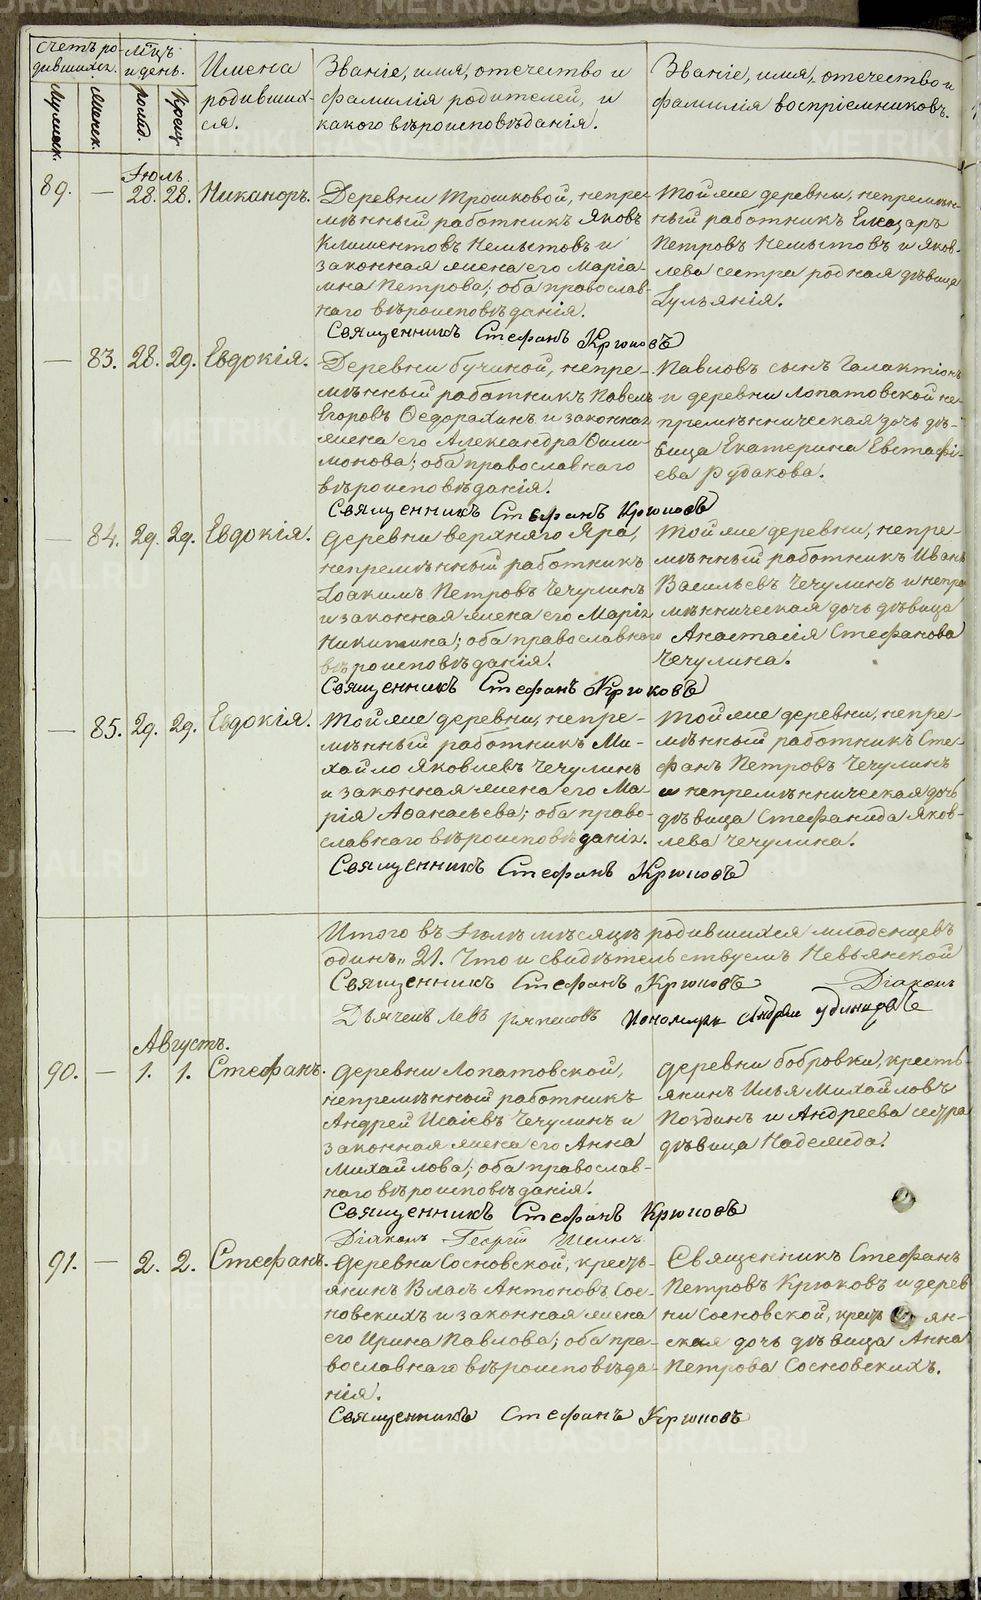 Счетъ ро-
дившихся.
Мужеск.
Женск.
Мѣц.
и день.
рожд.
крещ.
Имена
родивших-
ся.
Званіе, имя, отечество и
фамилія родителей, и
какого вѣроисповѣданія.
Званіе, имя, отечество и
фамилія воспріемниковъ.
Іюль.
89. — 28. 28. Никаноръ.
Деревни Трошковой, непре-
мѣнный работникъ Яковъ
Климентовъ Немытовъ и
законная жена его Марі-
мна Петрова; оба православ-
наго вѣроисповѣданія.
Священникъ Стефанъ Крюковъ
Той же деревни, непремѣн-
ный работникъ Елеазаръ
Петровъ Немытовъ и Яков-
лева сестра родная дѣвица
Іульянія.
— 83. 28. 29. Евдокія.
Деревни бучиной, непре-
мѣнный работникъ Павелъ
Егоровъ Ѳедорахинъ и законная
жена его Александра Фили-
монова; оба православнаго
вѣроисповѣданія.
Священникъ Стефанъ Крюковъ
Павловъ сынъ Галактіонъ
и деревни Лопатовской не-
премѣнническая дочь дѣ-
вица Екатерина Евстафі-
ева Рудакова.
— 84. 29. 29. Евдокія.
Деревни верхняго Яра,
непремѣнный работникъ
Іоакимъ Петровъ Чечулинъ
и законная жена его Марія
Никитина; оба православнаго
вѣроисповѣданія.
Священникъ Стефанъ Крюковъ
Той же деревни, непре-
мѣнный работникъ Иванъ
Васильевъ Чечулинъ и непре-
мѣнническая дочь дѣвица
Анастасія Стефанова
Чечулина.
— 85. 29. 29. Евдокія.
Той же деревни, непре-
мѣнный работникъ Ми-
хайло Яковлевъ Чечулинъ
и законная жена его Ма-
рія Аѳанасьева; оба право-
славнаго вѣроисповѣданія.
Священникъ Стефанъ Крюковъ
Той же деревни, непре-
мѣнный работникъ Сте-
фанъ Петровъ Чечулинъ
и непремѣнническая дочь
дѣвица Стефанида Яков-
лева Чечулина.
Итого въ Іюлѣ мѣсяцѣ родившихся младенцевъ
одинъ „ 21. Что и свидѣтельствуемъ Невьянской
Священникъ Стефанъ Крюковъ Діаконъ
Дьячекъ Левъ Пономарь Андрей Удинцовъ
Августъ.
90. — 1. 1. Стефанъ.
Деревни Лопатовской,
непремѣнный работникъ
Андрей Исаіевъ Чечулинъ и
законная жена его Анна
Михайлова; оба православ-
наго вѣроисповѣданія.
Священникъ Стефанъ Крюковъ
Діаконъ Георгій Шишъ
Деревни бобровки, кресть-
янинъ Илья Михайловъ
Поздинъ и Андреева сестра
дѣвица Надежда.
91. — 2. 2. Стефанъ.
Деревни Сосновской, кресть-
янинъ Власъ Антоновъ Сос-
новскихъ и законная жена
его Ирина Павлова; оба пра-
вославнаго вѣроисповѣда-
нія.
Священникъ Стефанъ Крюковъ
Священникъ Стефанъ
Петровъ Крюковъ и дерев-
ни Сосновской, кресть-ян-
ская дочь дѣвица Анна
Петрова Сосновскихъ.
METRIKI.GASO-URAL.RU